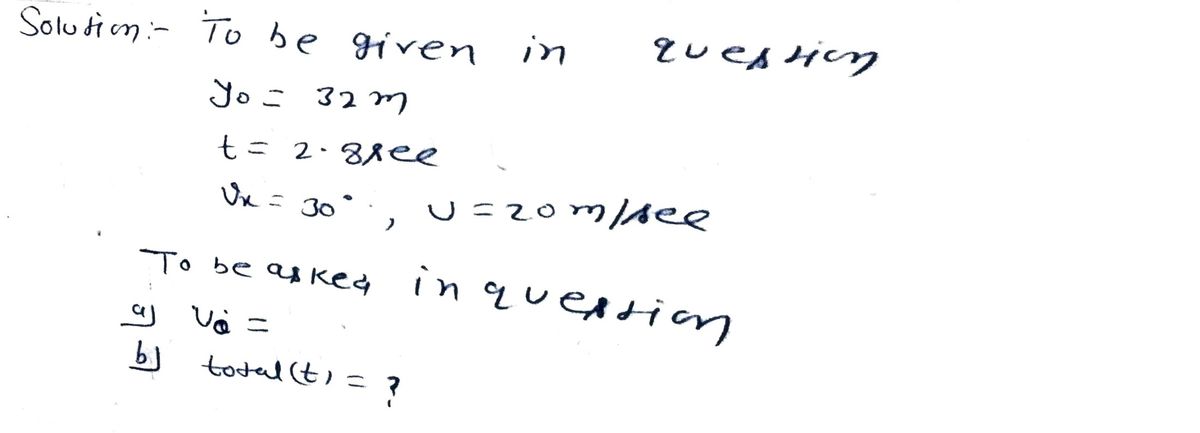 Solution:- To be given in question
y0 = 32 m
t = 2.8 sec
Vx = 30°, U = 20 m/sec
To be asked in question
a) V0 =
b) total (t) = ?